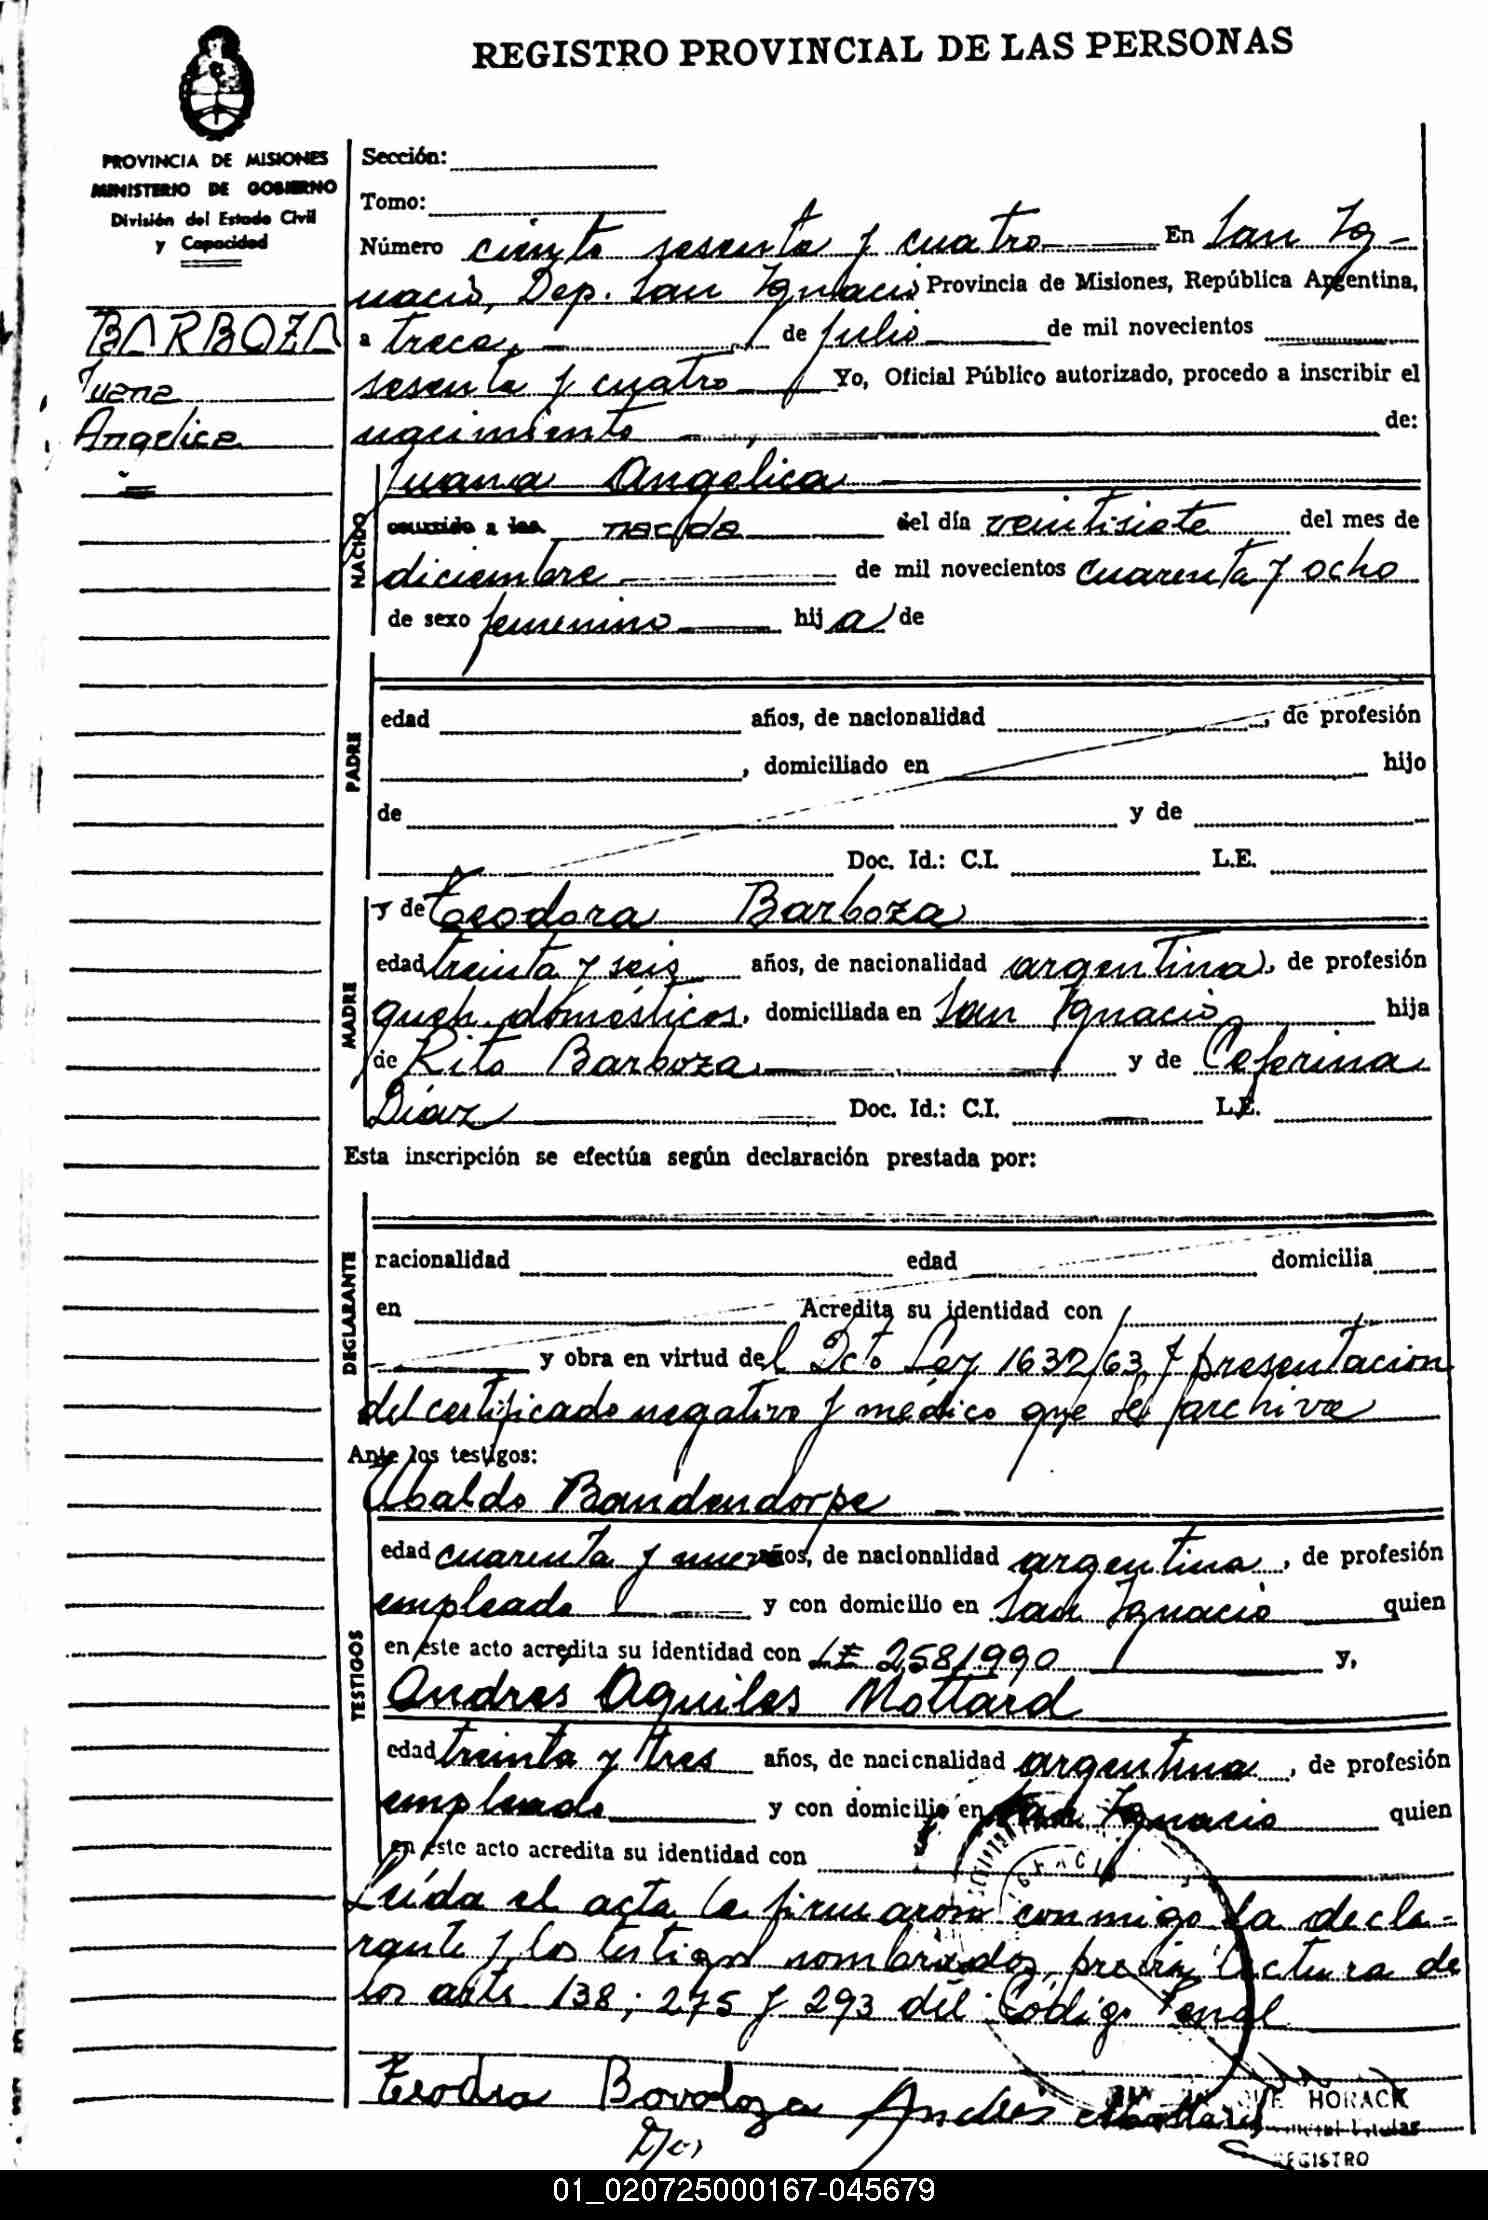 REGISTRO PROVINCIAL DE LAS PERSONAS
PROVINCIA DE MISIONES
MINISTERIO DE GOBIERNO
División del Estado Civil
y Capacidad
BARBOZA
Juana
Angelica
Sección:
Tomo:
Número ciento sesenta y cuatro En San Ig-
nacio, Dep. San Ignacio Provincia de Misiones, República Argentina,
a trece, de julio de mil novecientos
sesenta y cuatro Yo, Oficial Público autorizado, procedo a inscribir el
nacimiento de:
Juana Angélica
NACIDO
ocurrido a las nacida del día veintisiete del mes de
diciembre de mil novecientos cuarenta y ocho
de sexo femenino hija de
PADRE
edad años, de nacionalidad , de profesión
, domiciliado en hijo
de y de
Doc. Id.: C.I. L.E.
MADRE
y de Teodora Barboza
edad treinta y seis años, de nacionalidad argentina, de profesión
queh. domésticos, domiciliada en San Ignacio hija
de Rito Barboza y de Ceferina
Díaz Doc. Id.: C.I. L.E.
Esta inscripción se efectúa según declaración prestada por:
DECLARANTE
nacionalidad edad domicilia
en Acredita su identidad con
y obra en virtud del Dcto Ley 1632/63 y presentacion
del certificado negativo y médico que se archiva
Ante los testigos:
TESTIGOS
Ubaldo Bandendorpe
edad cuarenta y nueve años, de nacionalidad argentina, de profesión
empleado y con domicilio en San Ignacio quien
en este acto acredita su identidad con LE 2581990 y,
Andrés Aquiles Mottard
edad treinta y tres años, de nacionalidad argentina, de profesión
empleado y con domicilio en San Ignacio quien
en este acto acredita su identidad con
Leída el acta la firmaron conmigo la decla-
rante y los testigos nombrados, previa lectura de
los arts. 138; 275 y 293 del Código Penal
Teodra Bovoloza Andrés Mottard
HORACK
REGISTRO
01_020725000167-045679